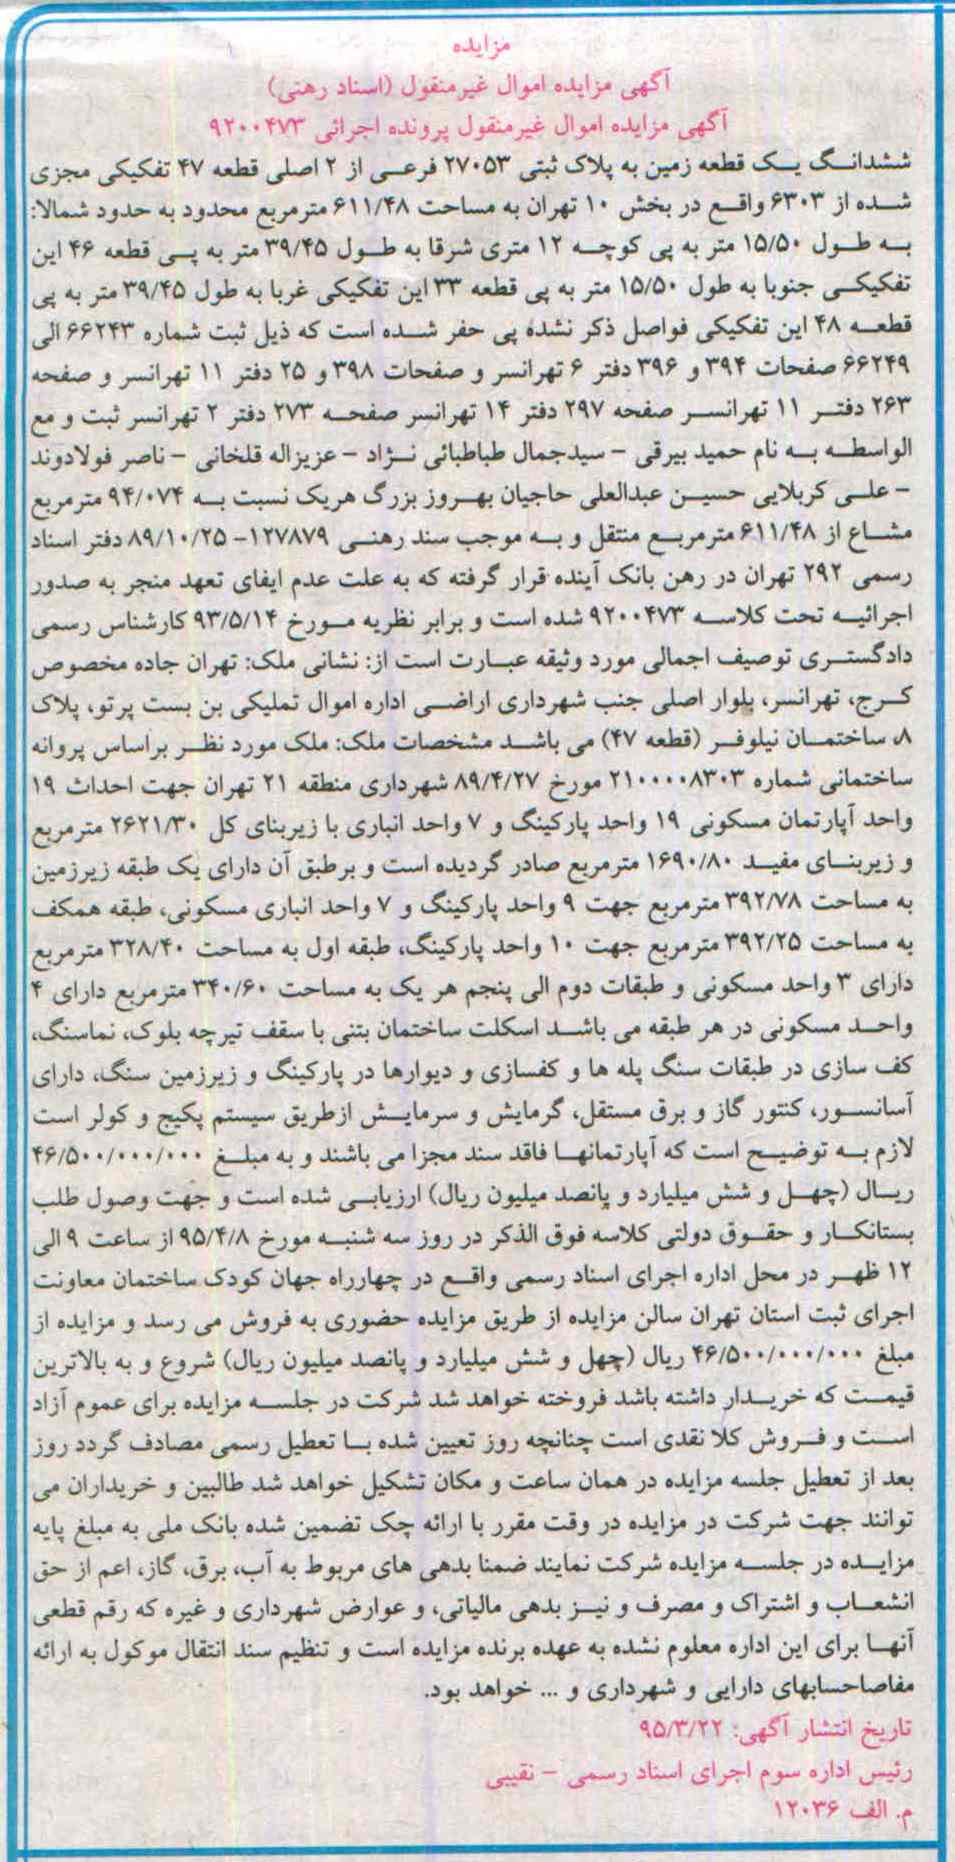 مزایده
آگهی مزایده اموال غیرمنقول (اسناد رهنی)
آگهی مزایده اموال غیرمنقول پرونده اجرائی ۹۲۰۰۴۷۳
ششدانگ یک قطعه زمین به پلاک ثبتی ۲۷۰۵۳ فرعی از ۲ اصلی قطعه ۴۷ تفکیکی مجزی
شده از ۶۳۰۳ واقع در بخش ۱۰ تهران به مساحت ۶۱۱/۴۸ مترمربع محدود به حدود شمالا:
به طول ۱۵/۵۰ متر به پی کوچه ۱۲ متری شرقا به طول ۳۹/۴۵ متر به پی قطعه ۴۶ این
تفکیکی جنوبا به طول ۱۵/۵۰ متر به پی قطعه ۳۳ این تفکیکی غربا به طول ۳۹/۴۵ متر به پی
قطعه ۴۸ این تفکیکی فواصل ذکر نشده پی حفر شده است که ذیل ثبت شماره ۶۶۲۴۳ الی
۶۶۲۴۹ صفحات ۳۹۴ و ۳۹۶ دفتر ۶ تهرانسر و صفحات ۳۹۸ و ۲۵ دفتر ۱۱ تهرانسر و صفحه
۲۶۳ دفتر ۱۱ تهرانسر صفحه ۲۹۷ دفتر ۱۴ تهرانسر صفحه ۲۷۳ دفتر ۲ تهرانسر ثبت و مع
الواسطه به نام حمید بیرقی – سیدجمال طباطبائی نژاد – عزیزاله قلخانی – ناصر فولادوند
– علی کربلایی حسین عبدالعلی حاجیان بهروز بزرگ هریک نسبت به ۹۴/۰۷۴ مترمربع
مشاع از ۶۱۱/۴۸ مترمربع منتقل و به موجب سند رهنی ۱۲۷۸۷۹- ۸۹/۱۰/۲۵ دفتر اسناد
رسمی ۲۹۲ تهران در رهن بانک آینده قرار گرفته که به علت عدم ایفای تعهد منجر به صدور
اجرائیه تحت کلاسه ۹۲۰۰۴۷۳ شده است و برابر نظریه مورخ ۹۳/۵/۱۴ کارشناس رسمی
دادگستری توصیف اجمالی مورد وثیقه عبارت است از: نشانی ملک: تهران جاده مخصوص
کرج، تهرانسر، بلوار اصلی جنب شهرداری اراضی اداره اموال تملیکی بن بست پرتو، پلاک
۸، ساختمان نیلوفر (قطعه ۴۷) می باشد مشخصات ملک: ملک مورد نظر براساس پروانه
ساختمانی شماره ۲۱۰۰۰۰۸۳۰۳ مورخ ۸۹/۴/۲۷ شهرداری منطقه ۲۱ تهران جهت احداث ۱۹
واحد آپارتمان مسکونی ۱۹ واحد پارکینگ و ۷ واحد انباری با زیربنای کل ۲۶۲۱/۳۰ مترمربع
و زیربنای مفید ۱۶۹۰/۸۰ مترمربع صادر گردیده است و برطبق آن دارای یک طبقه زیرزمین
به مساحت ۳۹۲/۷۸ مترمربع جهت ۹ واحد پارکینگ و ۷ واحد انباری مسکونی، طبقه همکف
به مساحت ۳۹۲/۲۵ مترمربع جهت ۱۰ واحد پارکینگ، طبقه اول به مساحت ۳۲۸/۴۰ مترمربع
دارای ۳ واحد مسکونی و طبقات دوم الی پنجم هر یک به مساحت ۳۴۰/۶۰ مترمربع دارای ۴
واحد مسکونی در هر طبقه می باشد اسکلت ساختمان بتنی با سقف تیرچه بلوک، نماسنگ،
کف سازی در طبقات سنگ پله ها و کفسازی و دیوارها در پارکینگ و زیرزمین سنگ، دارای
آسانسور، کنتور گاز و برق مستقل، گرمایش و سرمایش ازطریق سیستم پکیج و کولر است
لازم به توضیح است که آپارتمانها فاقد سند مجزا می باشند و به مبلغ ۴۶/۵۰۰/۰۰۰/۰۰۰
ریال (چهل و شش میلیارد و پانصد میلیون ریال) ارزیابی شده است و جهت وصول طلب
بستانکار و حقوق دولتی کلاسه فوق الذکر در روز سه شنبه مورخ ۹۵/۴/۸ از ساعت ۹ الی
۱۲ ظهر در محل اداره اجرای اسناد رسمی واقع در چهارراه جهان کودک ساختمان معاونت
اجرای ثبت استان تهران سالن مزایده از طریق مزایده حضوری به فروش می رسد و مزایده از
مبلغ ۴۶/۵۰۰/۰۰۰/۰۰۰ ریال (چهل و شش میلیارد و پانصد میلیون ریال) شروع و به بالاترین
قیمت که خریدار داشته باشد فروخته خواهد شد شرکت در جلسه مزایده برای عموم آزاد
است و فروش کلا نقدی است چنانچه روز تعیین شده با تعطیل رسمی مصادف گردد روز
بعد از تعطیل جلسه مزایده در همان ساعت و مکان تشکیل خواهد شد طالبین و خریداران می
توانند جهت شرکت در مزایده در وقت مقرر با ارائه چک تضمین شده بانک ملی به مبلغ پایه
مزایده در جلسه مزایده شرکت نمایند ضمنا بدهی های مربوط به آب، برق، گاز، اعم از حق
انشعاب و اشتراک و مصرف و نیز بدهی مالیاتی، و عوارض شهرداری و غیره که رقم قطعی
آنها برای این اداره معلوم نشده به عهده برنده مزایده است و تنظیم سند انتقال موکول به ارائه
مفاصاحسابهای دارایی و شهرداری و ... خواهد بود.
تاریخ انتشار آگهی: ۹۵/۳/۲۲
رئیس اداره سوم اجرای اسناد رسمی – نقیبی
م. الف ۱۲۰۳۶